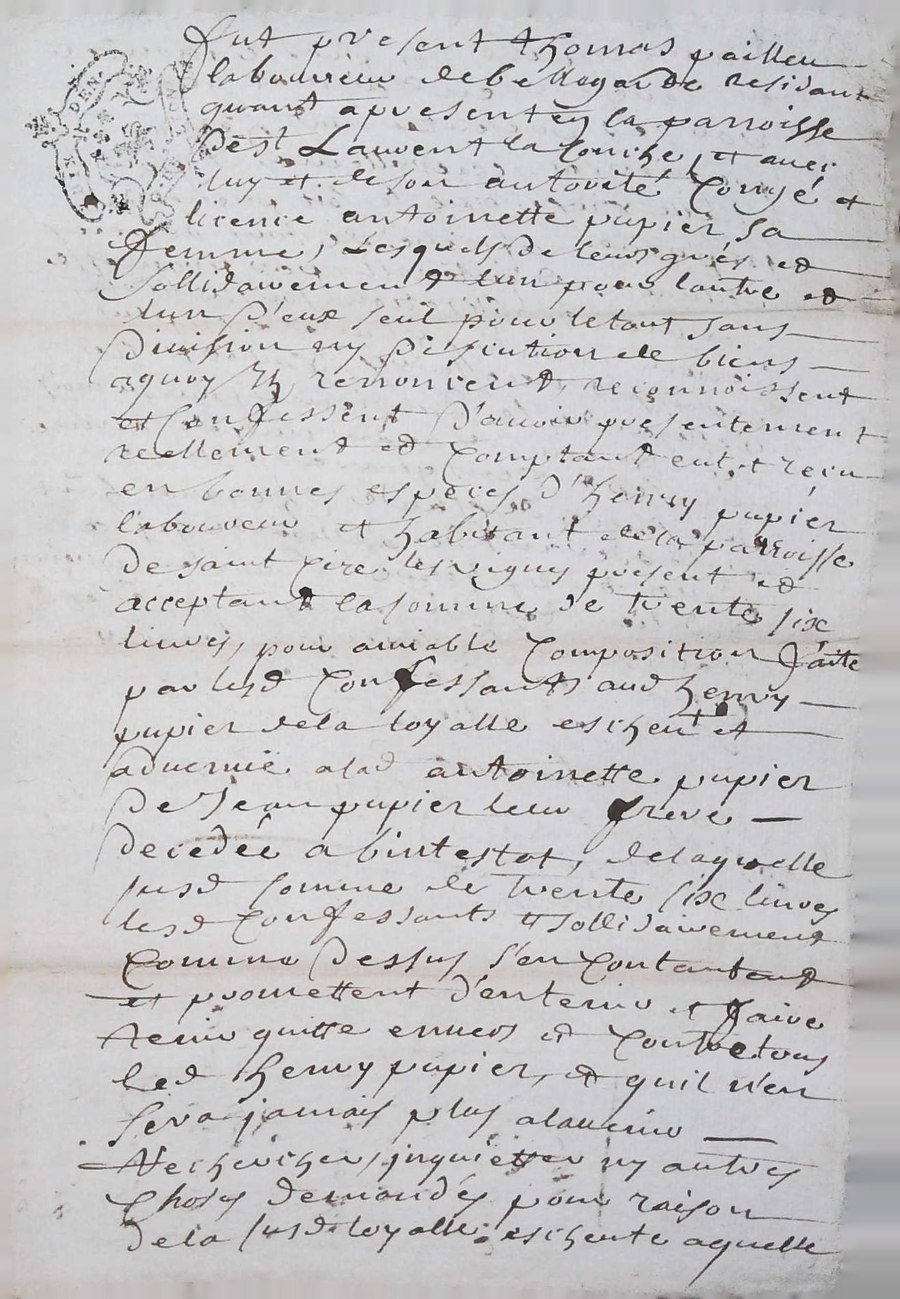 fut present thomas pailleu
laboureur de bellegarde residant
quant apresent en la parroisse
de st Laurent la Conche, et avec
luy et de son autorité Congé et
licence antoinette pupier sa
femme, Lesquels de leurs grés et
sollidairement lun pour lautre et
lun d'eux seul pour letout sans
division ny discution de biens
aquoy ils renoncent, reconnoissent
et Confessent d'avoir presentement
reellement et Comptant eut et recu
en bonnes especes d'henry pupier
laboureur et habitant dela parroisse
de saint Cire les vignes present et
acceptant la somme de trente six
livres, pour amiable Composition faite
par lesd Confessants aud henry
pupier dela loyalle escheute et
advenue alad antoinette pupier
de Jean pupier leur frere
decedée abintestat, delaquelle
susd somme de trente six livres
lesd Confessants sollidairement
Comme dessus s'en Contantent
et promettent d'en tenir et faire
tenir quitte envers et Contre tous
led henry pupier, et quil n'en
sera jamais plus aladvenir
Recherches, inquietter ny autres
Choses demandés pour raison
dela susd loyalle escheute aquelle